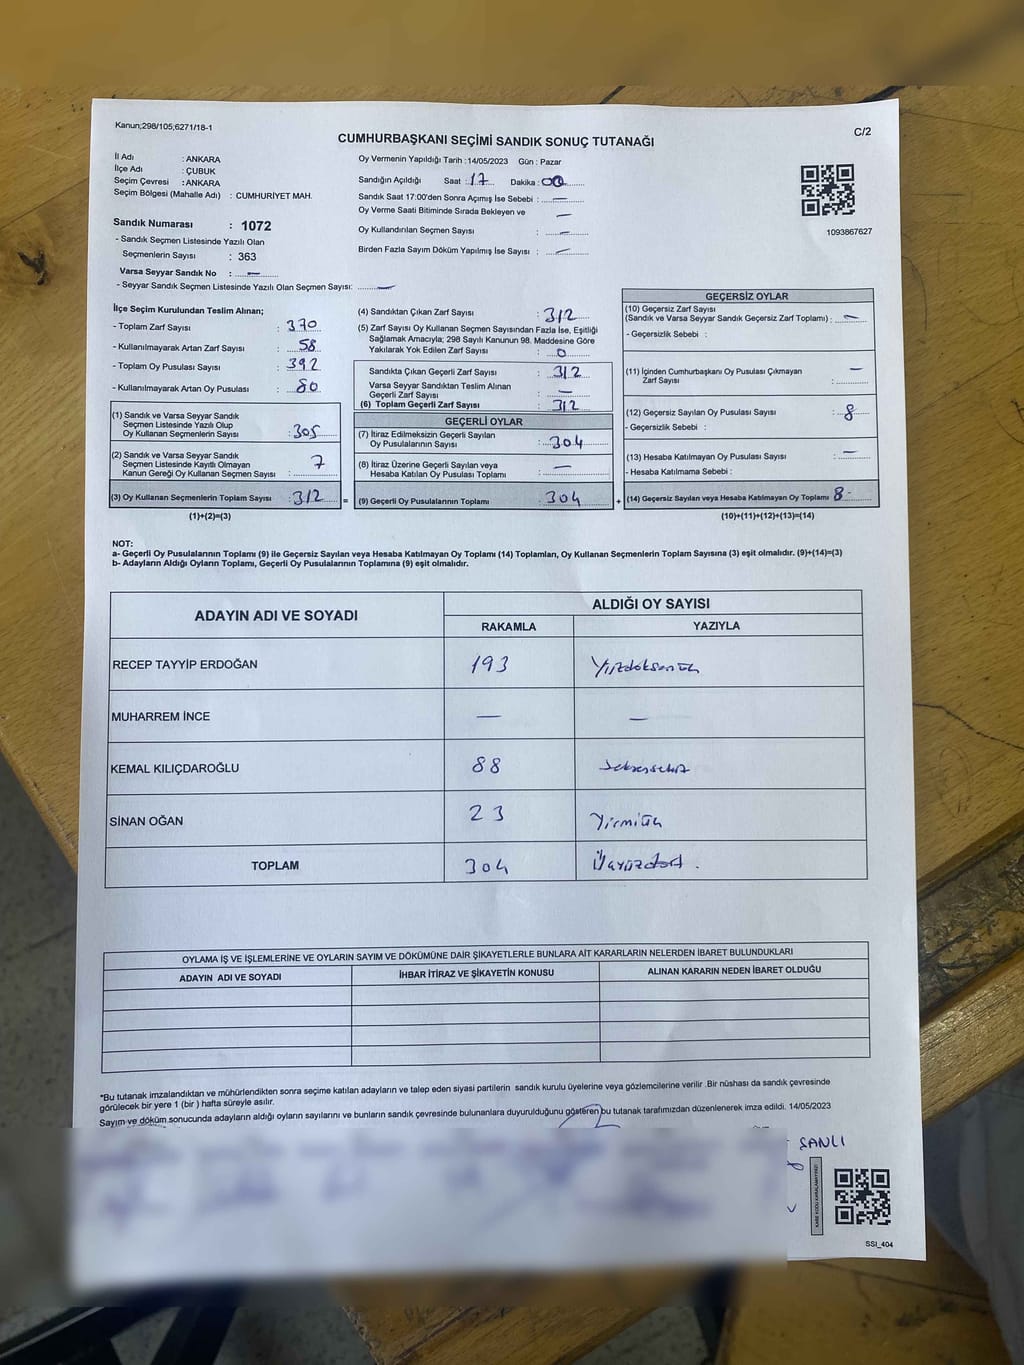 Kanun;298/105;6271/18-1
C/2
CUMHURBAŞKANI SEÇİMİ SANDIK SONUÇ TUTANAĞI
İl Adı : ANKARA
İlçe Adı : ÇUBUK
Seçim Çevresi : ANKARA
Seçim Bölgesi (Mahalle Adı) : CUMHURİYET MAH.
Sandık Numarası : 1072
- Sandık Seçmen Listesinde Yazılı Olan
Seçmenlerin Sayısı : 363
Varsa Seyyar Sandık No : —
- Seyyar Sandık Seçmen Listesinde Yazılı Olan Seçmen Sayısı: —
Oy Vermenin Yapıldığı Tarih :14/05/2023 Gün : Pazar
Sandığın Açıldığı Saat : 17 Dakika : 00
Sandık Saat 17:00'den Sonra Açımış İse Sebebi : —
Oy Verme Saati Bitiminde Sırada Bekleyen ve —
Oy Kullandırılan Seçmen Sayısı : —
Birden Fazla Sayım Döküm Yapılmış İse Sayısı : —
1093867627
İlçe Seçim Kurulundan Teslim Alınan;
- Toplam Zarf Sayısı : 370
- Kullanılmayarak Artan Zarf Sayısı : 58
- Toplam Oy Pusulası Sayısı : 392
- Kullanılmayarak Artan Oy Pusulası : 80
(1) Sandık ve Varsa Seyyar Sandık
Seçmen Listesinde Yazılı Olup
Oy Kullanan Seçmenlerin Sayısı : 305
(2) Sandık ve Varsa Seyyar Sandık
Seçmen Listesinde Kayıtlı Olmayan
Kanun Gereği Oy Kullanan Seçmen Sayısı : 7
(3) Oy Kullanan Seçmenlerin Toplam Sayısı : 312 =
(1)+(2)=(3)
(4) Sandıktan Çıkan Zarf Sayısı : 312
(5) Zarf Sayısı Oy Kullanan Seçmen Sayısından Fazla İse, Eşitliği
Sağlamak Amacıyla; 298 Sayılı Kanunun 98. Maddesine Göre
Yakılarak Yok Edilen Zarf Sayısı : 0
Sandıkta Çıkan Geçerli Zarf Sayısı : 312
Varsa Seyyar Sandıktan Teslim Alınan
Geçerli Zarf Sayısı : —
(6) Toplam Geçerli Zarf Sayısı : 312
GEÇERLİ OYLAR
(7) İtiraz Edilmeksizin Geçerli Sayılan
Oy Pusulalarının Sayısı : 304
(8) İtiraz Üzerine Geçerli Sayılan veya
Hesaba Katılan Oy Pusulası Toplamı : —
(9) Geçerli Oy Pusulalarının Toplamı : 304 +
GEÇERSİZ OYLAR
(10) Geçersiz Zarf Sayısı
(Sandık ve Varsa Seyyar Sandık Geçersiz Zarf Toplamı) : —
- Geçersizlik Sebebi :
(11) İçinden Cumhurbaşkanı Oy Pusulası Çıkmayan —
Zarf Sayısı :
(12) Geçersiz Sayılan Oy Pusulası Sayısı : 8
- Geçersizlik Sebebi :
(13) Hesaba Katılmayan Oy Pusulası Sayısı : —
- Hesaba Katılmama Sebebi :
(14) Geçersiz Sayılan veya Hesaba Katılmayan Oy Toplamı 8
(10)+(11)+(12)+(13)=(14)
NOT:
a- Geçerli Oy Pusulalarının Toplamı (9) ile Geçersiz Sayılan veya Hesaba Katılmayan Oy Toplamı (14) Toplamları, Oy Kullanan Seçmenlerin Toplam Sayısına (3) eşit olmalıdır. (9)+(14)=(3)
b- Adayların Aldığı Oyların Toplamı, Geçerli Oy Pusulalarının Toplamına (9) eşit olmalıdır.
ADAYIN ADI VE SOYADI
ALDIĞI OY SAYISI
RAKAMLA YAZIYLA
RECEP TAYYİP ERDOĞAN 193 Yüzdoksanüç
MUHARREM İNCE — —
KEMAL KILIÇDAROĞLU 88 Seksensekiz
SİNAN OĞAN 23 Yirmiüç
TOPLAM 304 Üçyüzdört.
OYLAMA İŞ VE İŞLEMLERİNE VE OYLARIN SAYIM VE DÖKÜMÜNE DAİR ŞİKAYETLERLE BUNLARA AİT KARARLARIN NELERDEN İBARET BULUNDUKLARI
ADAYIN ADI VE SOYADI İHBAR İTİRAZ VE ŞİKAYETİN KONUSU ALINAN KARARIN NEDEN İBARET OLDUĞU
*Bu tutanak imzalandıktan ve mühürlendikten sonra seçime katılan adayların ve talep eden siyasi partilerin sandık kurulu üyelerine veya gözlemcilerine verilir .Bir nüshası da sandık çevresinde
görülecek bir yere 1 (bir ) hafta süreyle asılır.
Sayım ve döküm sonucunda adayların aldığı oyların sayılarını ve bunların sandık çevresinde bulunanlara duyurulduğunu gösteren bu tutanak tarafımızdan düzenlenerek imza edildi. 14/05/2023
ŞANLI
SSI_404